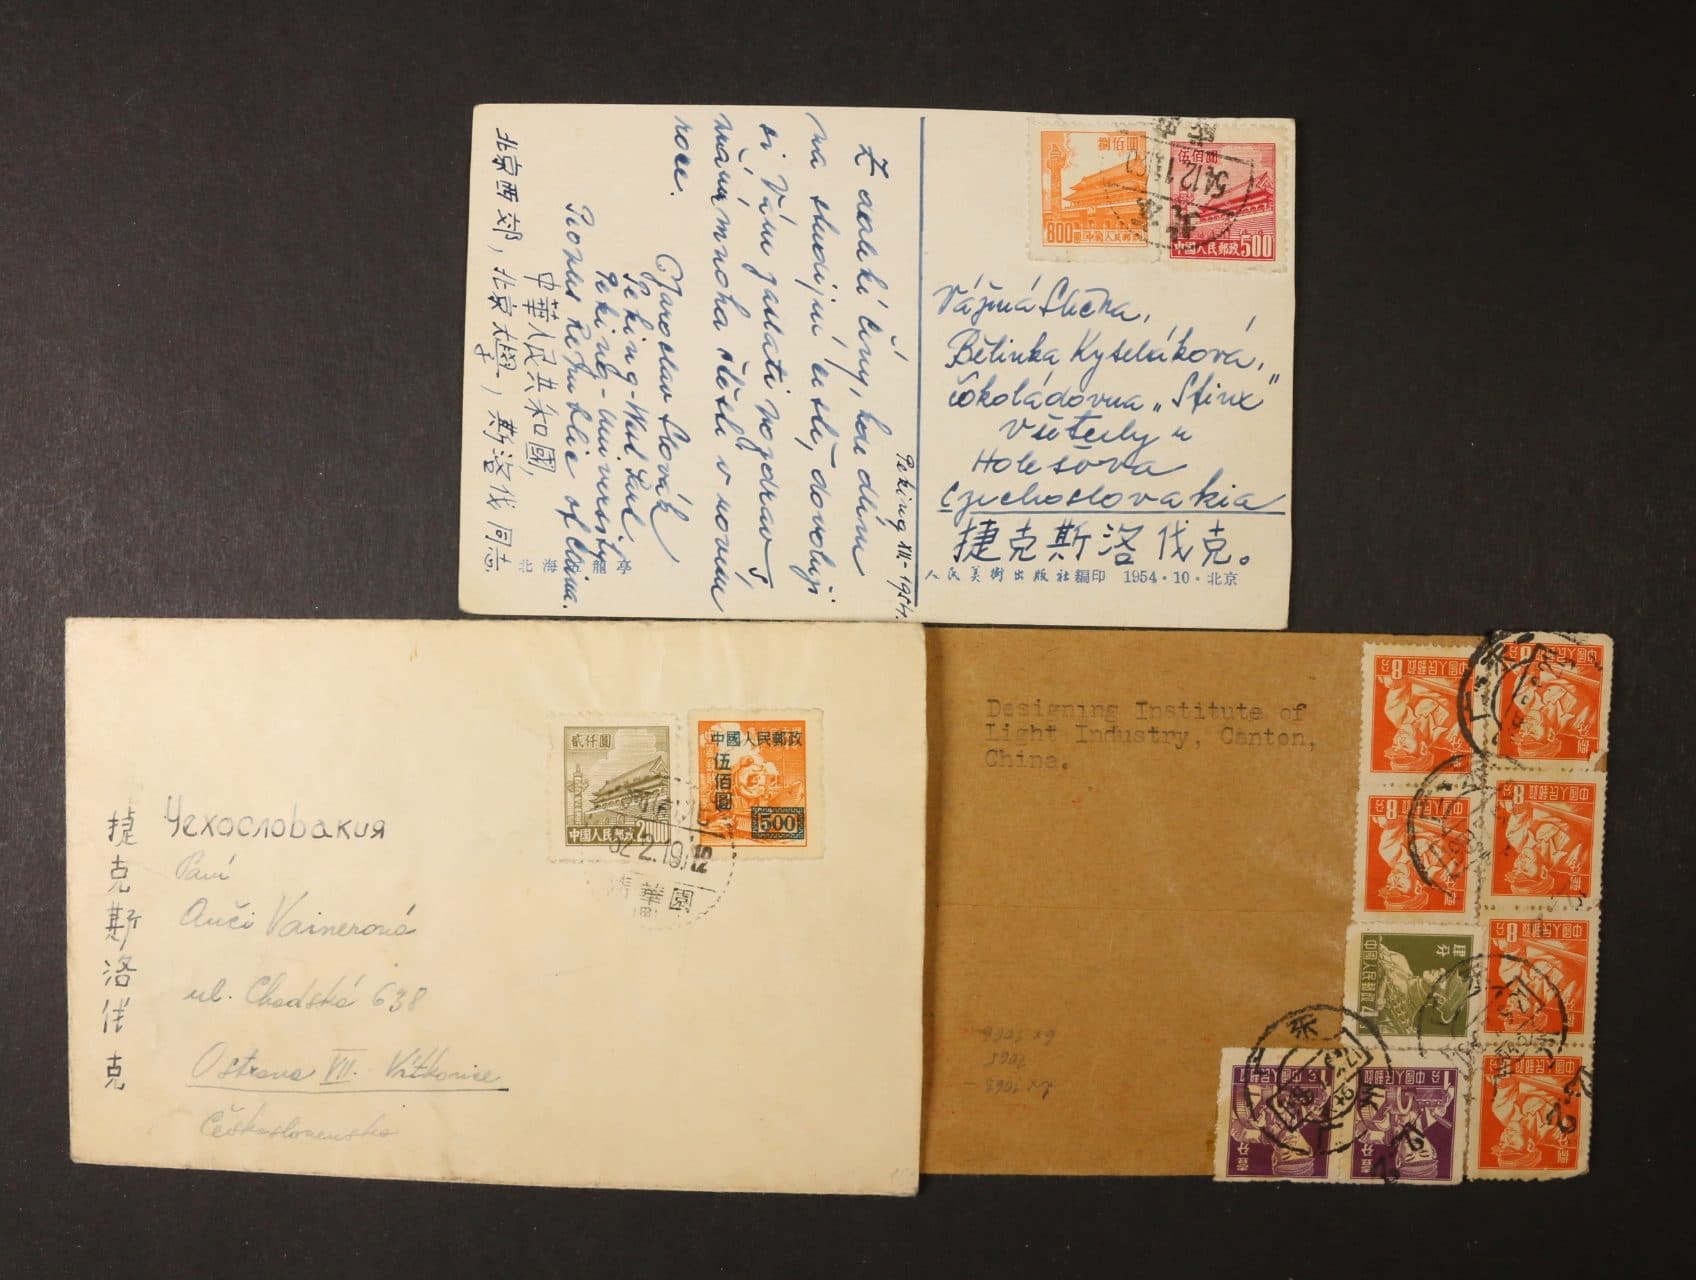 北京西郊，北京大學，斯洛伐同志
中華人民共和國，
Z daleké Číny, kde dlím
na studijní cestě, dovoluji
si Vám zaslati pozdrav s
přáním mnoha štěstí v novém
roce.
Jaroslav Slovák
Peking-West Sud
Peking-University
Peoples Republic of China.
Peking XII-1954.
北海五龍亭
捌佰圓
800
中國人民郵政
伍佰圓
中國人民郵政 500
54.12.1
北京
Vážná Slečna,
Bělinka Kyseláková,
čokoládovna „Sfinx"
Všetuly u
Holešova
Czechoslovakia
捷克斯洛伐克。
人民美術出版社編印 1954·10·北京
捷克斯洛伐克
Чехословакия
Paní
Anči Vainerová
ul. Chodská 638
Ostrava VII. Vítkovice
Československo
貳仟圓
中國人民郵政
中國人民郵政
伍佰圓
500
52.2.19
清華園
Designing Institute of
Light Industry, Canton,
China.
中國人民郵政 8分
捌分
中國人民郵政 8分
捌分
中國人民郵政 8分
捌分
中國人民郵政 8分
捌分
中國人民郵政 8分
捌分
中國人民郵政
捌分
肆分
中國人民郵政 4
1分 中國人民郵政
壹分
1分 中國人民郵政
壹分
6x 1066
1065
2x 1063